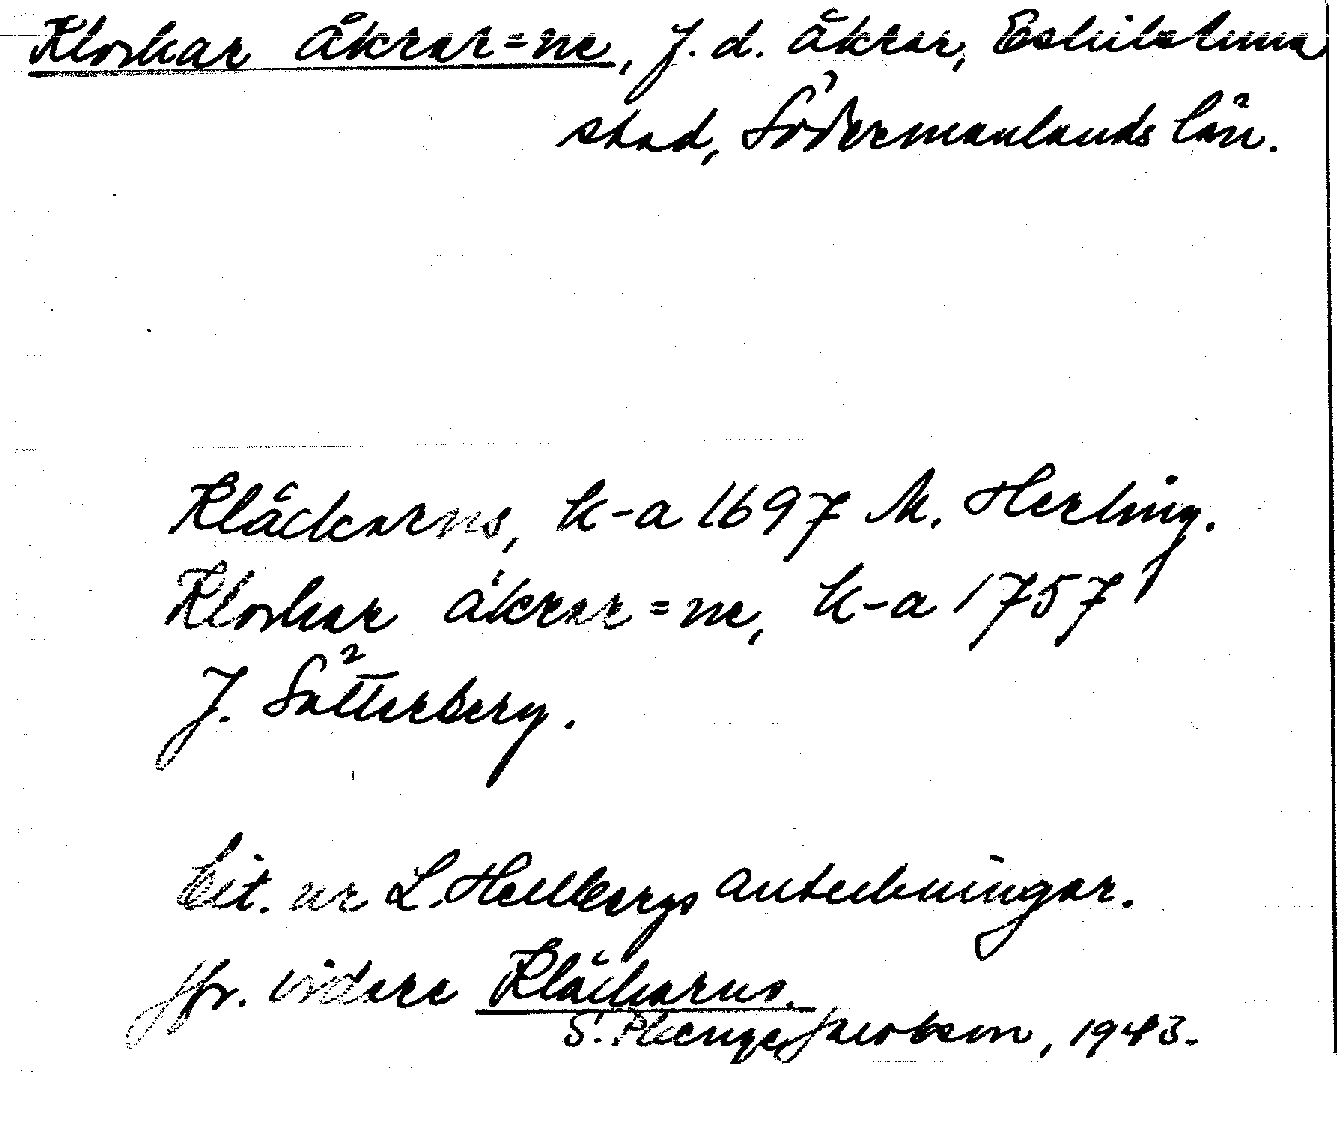 Klockar åkrar=ne, f. d. åkrar, Eskilstuna
stad, Södermanlands län.
Kläckarns, k-a 1697 M. Herling.
Klockar åkrar=ne, k-a 1757
J. Sätterberg.
Cit. ur L. Hellbergs anteckningar.
Jfr. vidare Kläckarns.
S. Jacobson, 1943.